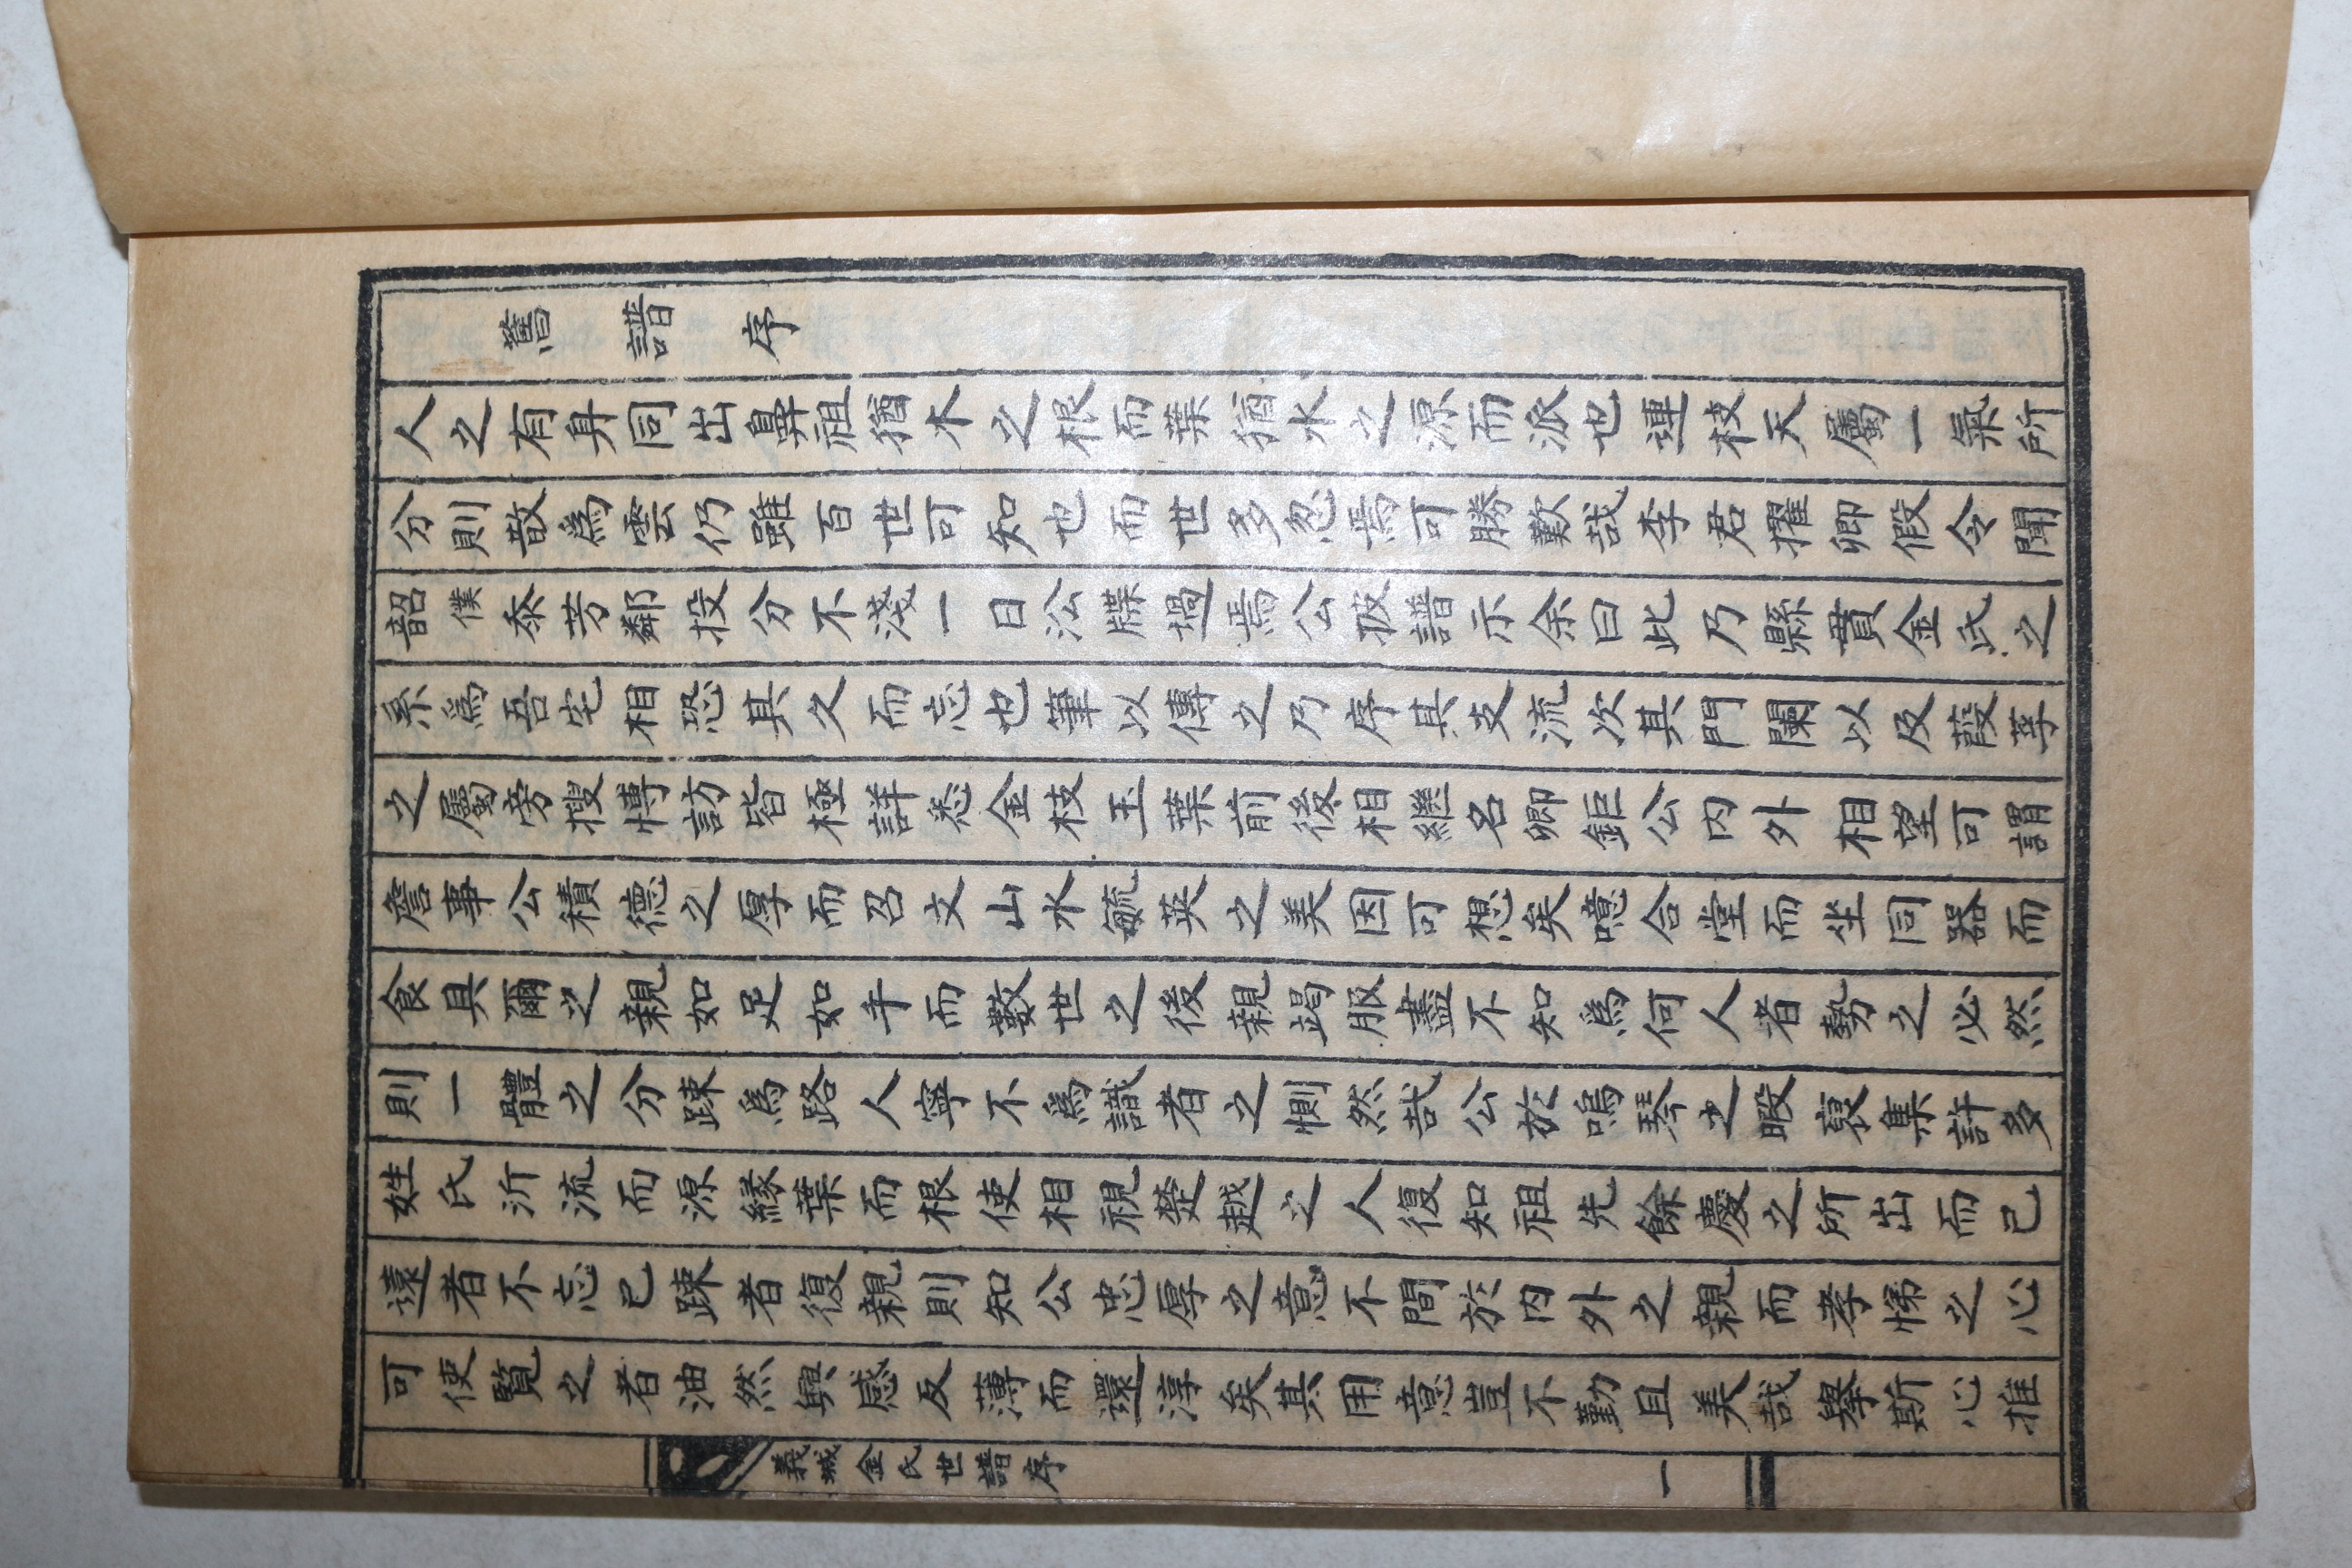 舊譜序
人之有身同出鼻祖猶木之根而葉猶水之源而派也連枝天屬一氣所
分則散爲雲仍雖百世可知也而世多忽焉可勝歎哉李君擢卿假令聞
韶僕忝芳鄰投分不淺一日㳂牒過焉公披譜示余曰此乃縣貫金氏之
系爲吾宅相恐其久而忘也筆以傳之乃序其支流次其門闌以及葭莩
之屬旁搜愽訪皆極詳悉金枝玉葉前後相繼名卿鉅公內外相望可謂
詹事公積德之厚而召文山水毓英之美因可想矣噫合堂而坐同器而
食具爾之親如足如手而數世之後親竭服盡不知爲何人者勢之必然
則一體之分踈爲路人寧不爲識者之惻然哉公於嗚琴之暇裒集許多
姓氏沂流而源緣葉而根使相視楚越之人復知祖先餘慶之所出而已
遠者不忘已踈者復親則知公忠厚之意不間於內外之親而孝悌之心
可使覽之者油然興感反薄而還淳矣其用意豈不勤且美哉擧斯心推
義城金氏世譜序
一